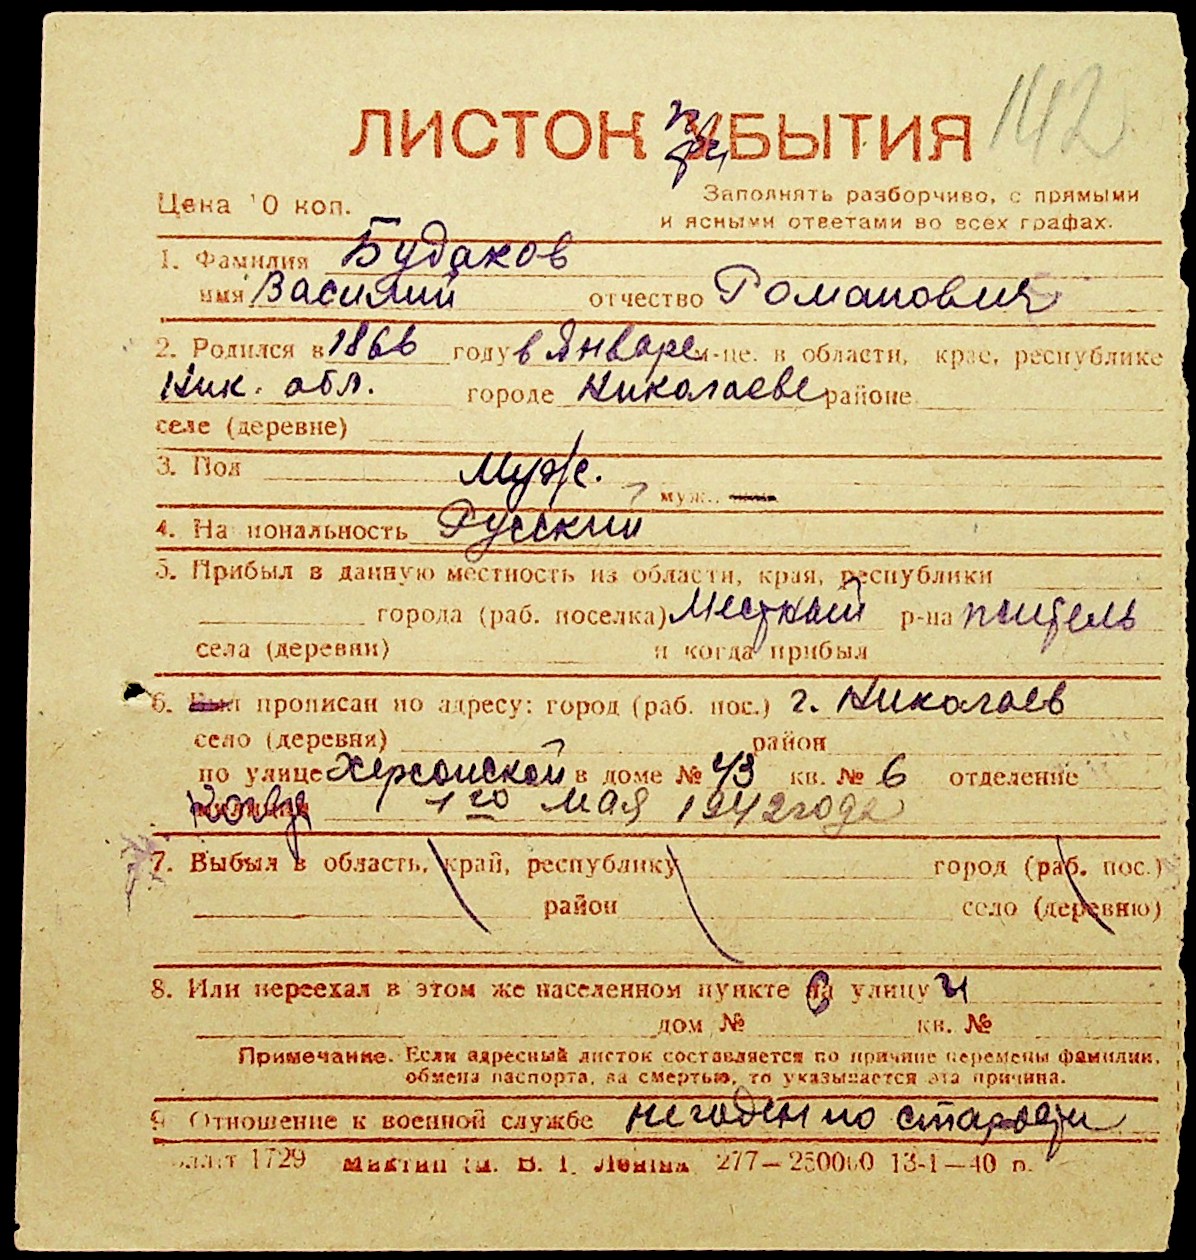 142
ЛИСТОК прибЫТИЯ
Цена 10 коп.
Заполнять разборчиво, с прямыми
и ясными ответами во всех графах.
1. Фамилия Будаков
имя Василий отчество Романович
2. Родился в 1866 году в Январе м-це. в области, крае, республике
Ник. обл. городе Николаеве районе
селе (деревне)
3. Пол муж.
муж.
4. Национальность Русский
5. Прибыл в данную местность из области, края, республики
города (раб. поселка) Местный р-на житель
села (деревни) и когда прибыл
6. Был прописан по адресу: город (раб. пос.) г. Николаев
село (деревня) район
по улице Херсонской в доме № 43 кв. № 6 отделение
Когда 1го мая 1942 года
7. Выбыл в область, край, республику город (раб. пос.)
район село (деревню)
8. Или переехал в этом же населенном пункте улицу
дом № кв. №
Примечание. Если адресный листок составляется по причине перемены фамилии,
обмена паспорта, за смертью, то указывается эта причина.
9. Отношение к военной службе не годен по старости
1729 им. В. І. Леніна 277—250000 13-1—40 р.